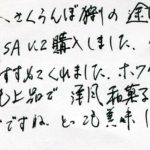 、さくらんぼ狩りの途
SAにて購入しました.
すすめてくれました。ホワ
も上品で 洋風和菓子
ですね。とっても美味し